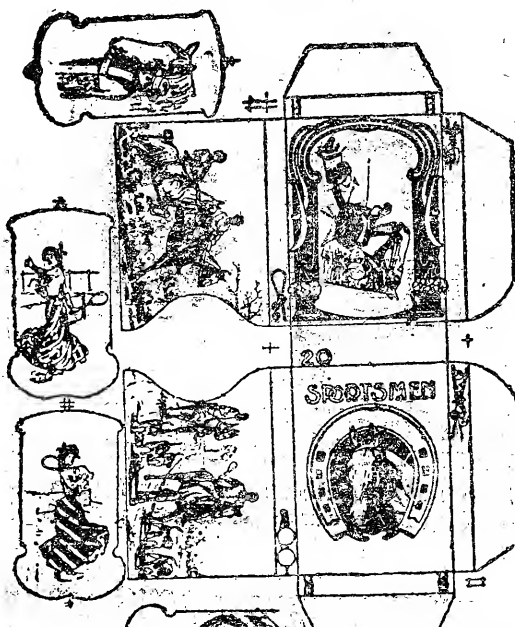 20
SPORTSMEN